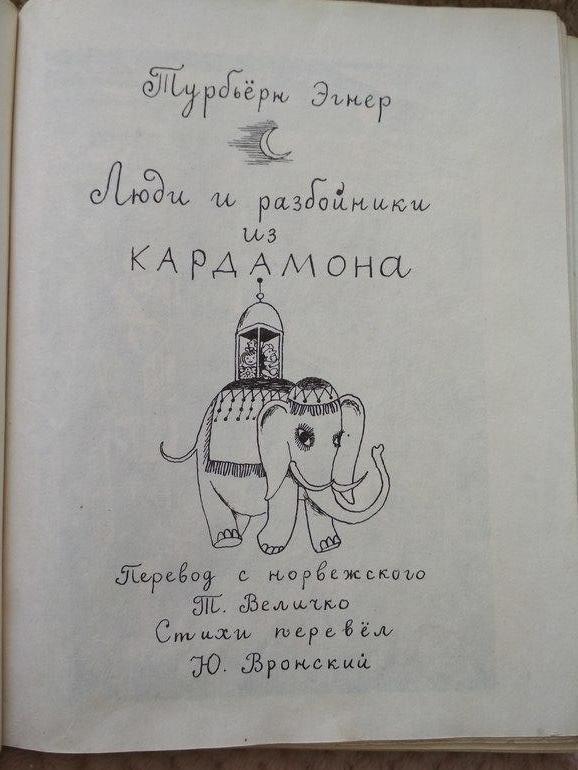 Турбьёрн Эгнер
Люди и разбойники
из
КАРДАМОНа
Перевод с норвежского
Т. Величко
Стихи перевёл
Ю. Вронский